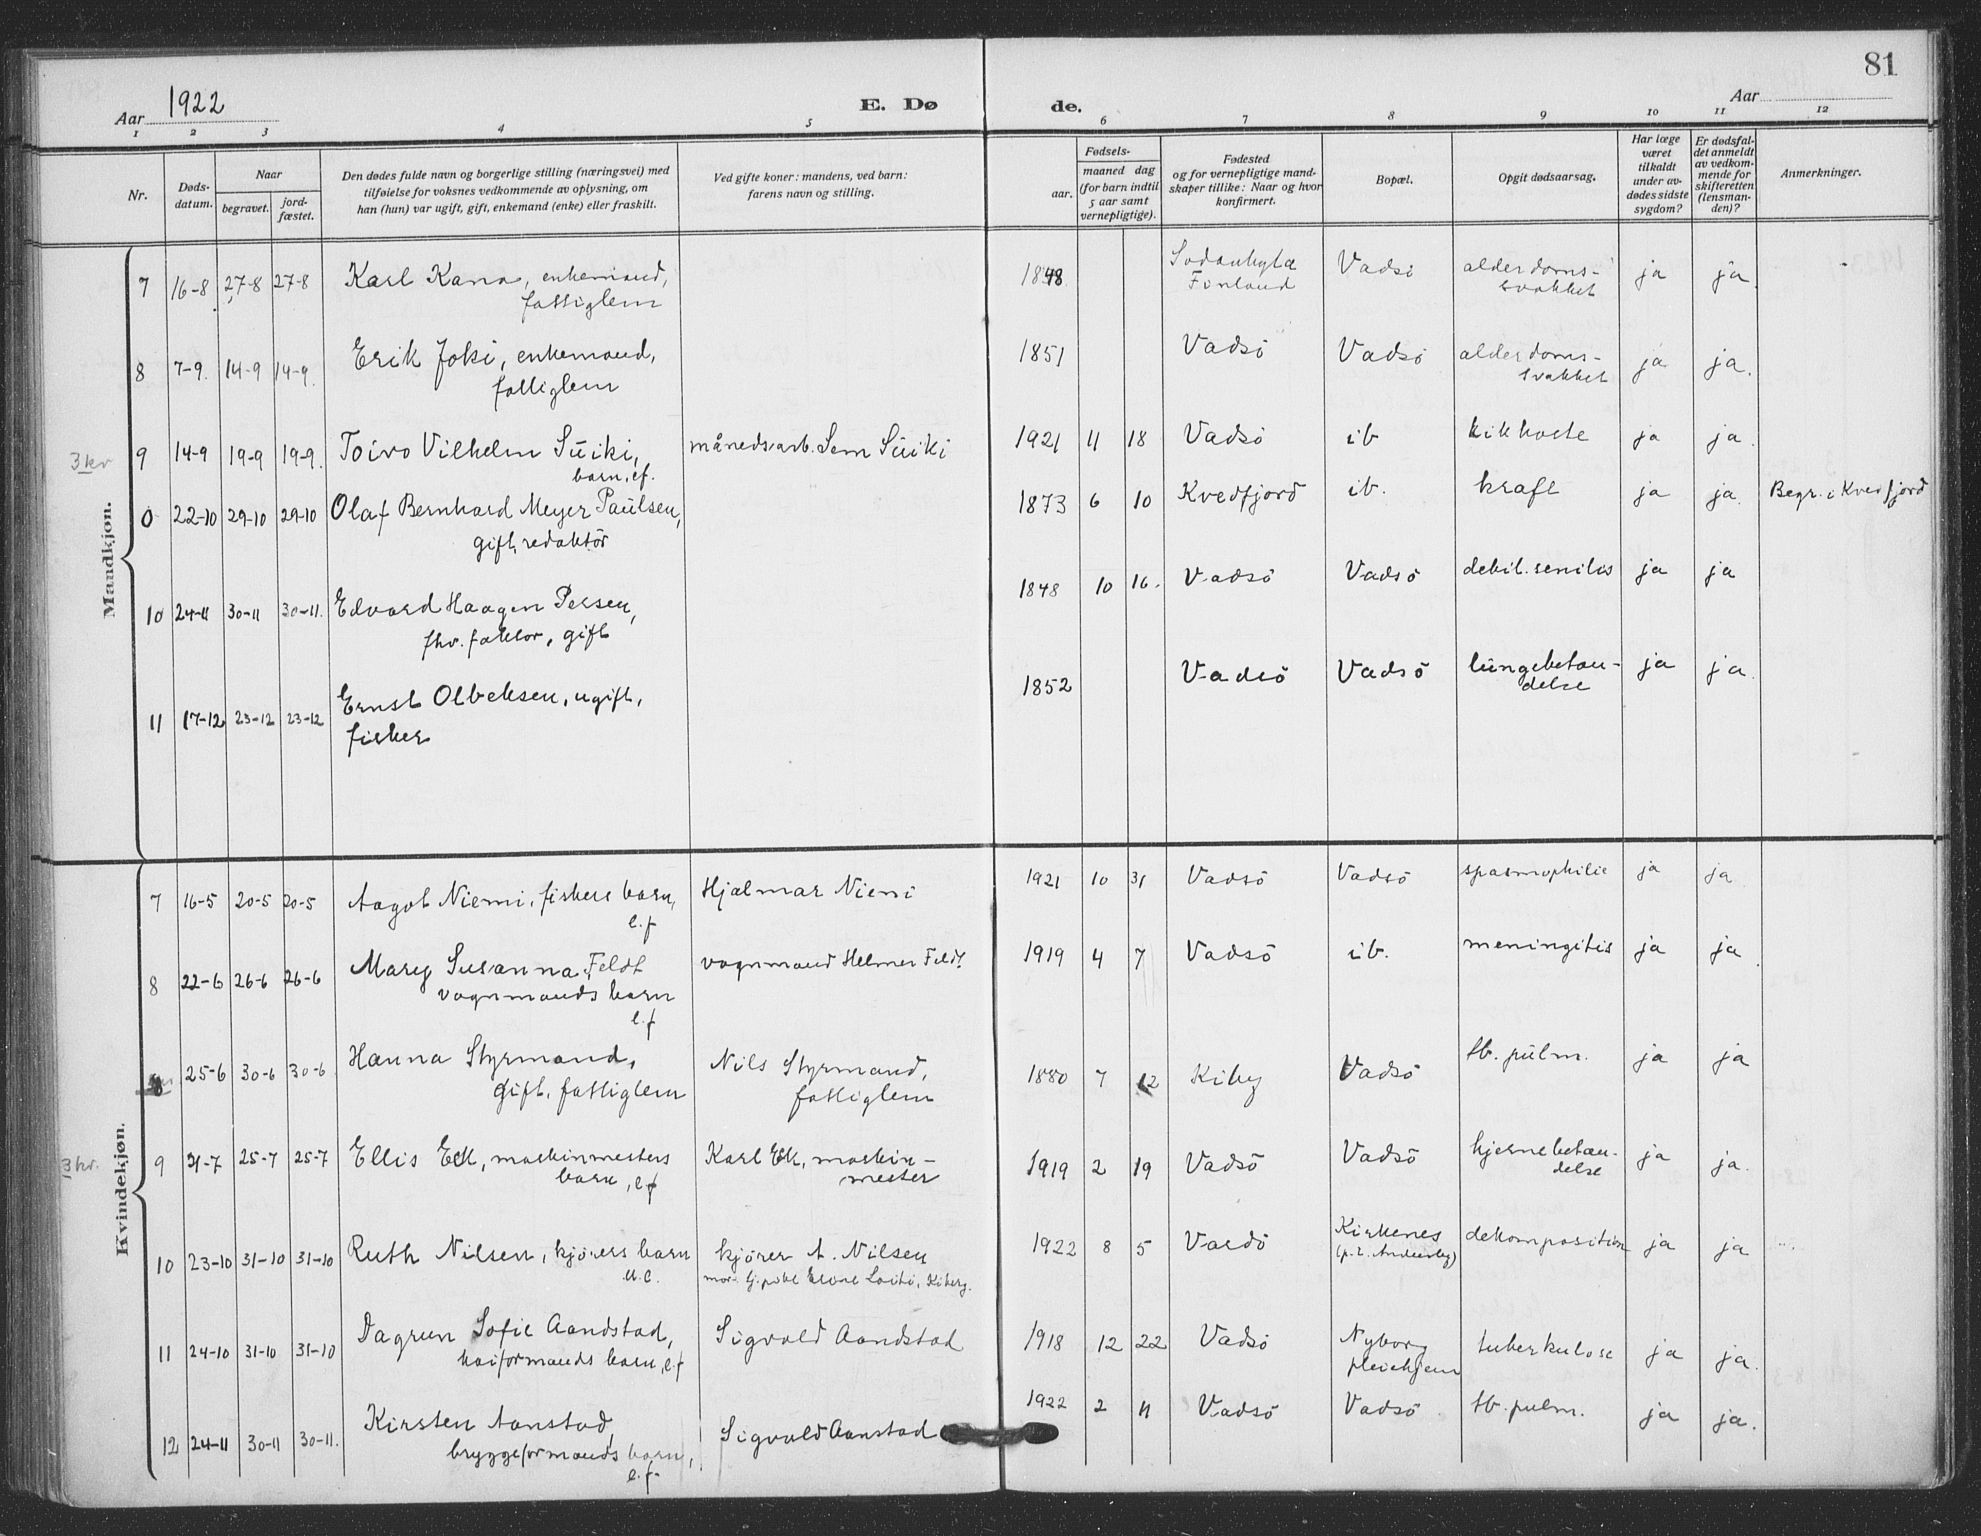 81
Aar 1922
E. Dø
de.
Aar
1 2 3 4 5 6 7 8 9 10 11 12
Nr.
Døds-
datum.
Naar
begravet.
jord-
fæstet.
Den dødes fulde navn og borgerlige stilling (næringsvei) med
tilføielse for voksnes vedkommende av oplysning, om
han (hun) var ugift, gift, enkemand (enke) eller fraskilt.
Ved gifte koner: mandens, ved barn:
farens navn og stilling.
Fødsels-
aar.
maaned dag
(for barn indtil
5 aar samt
vernepligtige).
Fødested
og for vernepligtige mand-
skaper tillike: Naar og hvor
konfirmert.
Bopæl.
Opgit dødsaarsag.
Har læge
været
tilkaldt
under av-
dødes sidste
sygdom?
Er dødsfal-
det anmeldt
av vedkom-
mende for
skifteretten
(lensman-
den)?
Anmerkninger.
Mandkjøn.
7 16-8 27-8 27-8 Karl Kana, enkemand, 1848 Sodankyla Vadsö alderdoms- ja ja
fattiglem Finland svakhet
8 7-9. 14-9 14-9. Erik Joki, enkemand, 1851 Vadsö Vadsö alderdoms- ja ja.
fattiglem svakhet
3 kr 9 14-9 19-9 19-9. Toivo Vilhelm Suiki, månedsarb. Sem Suiki 1921 11 18 Vadsö ib kikhoste ja ja.
barn, ef.
0 22-10 29-10 29-10 Olaf Bernhard Meyer Paulsen, 1873 6 10 Kvedfjord ib. kraft ja ja. Begr. i Kvedfjord
gift, redaktör
10 24-11 30-11 30-11. Edvard Haagen Persen, 1848 10 16. Vadsö Vadsö debil. senilis ja ja
fhv. faktor, gift
11 17-12 23-12 23-12 Ernst Olbeksen, ugift, 1852 Vadsö Vadsö lungebetæn- ja ja.
fisker delse
Kvindekjøn.
7 16-5 20-5 20-5 Aagot Niemi, fiskers barn, Hjalmar Niemi 1921 10 31 Vadsö Vadsö spasmophilie ja ja
e.f
8 22-6 26-6 26-6 Mary Susanna Feldt vognmand Helmer Feldt 1919 4 7 Vadsö ib. meningitis ja ja
vognmands barn
e.f
25-6 30-6 30-6 Hanna Styrmand, Nils Styrmand, 1880 7 12 Kiby Vadsö tb. pulm. ja ja
gift, fattiglem fattiglem
3 kr. 9 21-7 25-7 25-7 Ellis Eck, maskinmesters Karl Eck, maskin- 1919 2 19 Vadsö Vadsö hjernebetæn- ja ja.
barn, ef mester delse
10 23-10 31-10 31-10 Ruth Nilsen, kjörers barn kjörer A. Nilsen 1922 8 5 Vardö Kirkenes dekomposition ja ja
u.e. Kiberg.
11 24-10 31-10 31-10 Dagrun Sofie Aandstad, Sigvald Aandstad 1918 12 22 Vadsö Nyborg tuberkulose ja ja.
kaiformands barn, e.f pleiehjem
12 24-11 30-11 30-11. Kirsten Aanstad, Sigvald Aanstad 1922 2 11 Vadsö Vadsö tb. pulm. ja ja.
bryggeformands barn,
e.f.